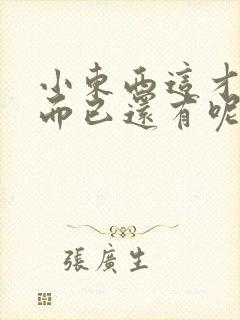 小東西這才
而已還有呢
張廣生